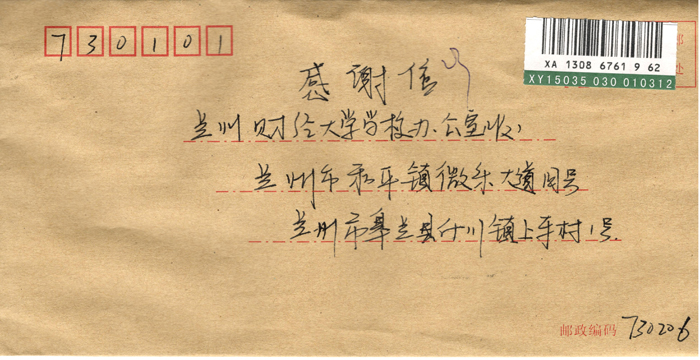 730101
感谢信
XA 1308 6761 9 62
XY15035 030 010312
兰州财经大学学校办公室收
兰州市和平镇薇乐大道同号
兰州市皋兰县什川镇上车村1号.
邮政编码 730206